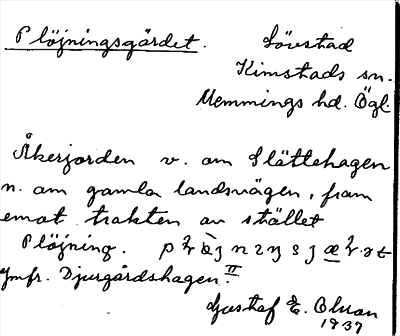 Plöjningsgärdet. Lövstad
Kimstads sn.
Memmings hd. Ögl.
Åkerjorden v. om Slättehagen
n. om gamla landsvägen, fram
emot trakten av stället
Plöjning.
Jmfr. Djurgårdshagen. II
Gustaf E. Olson
1937